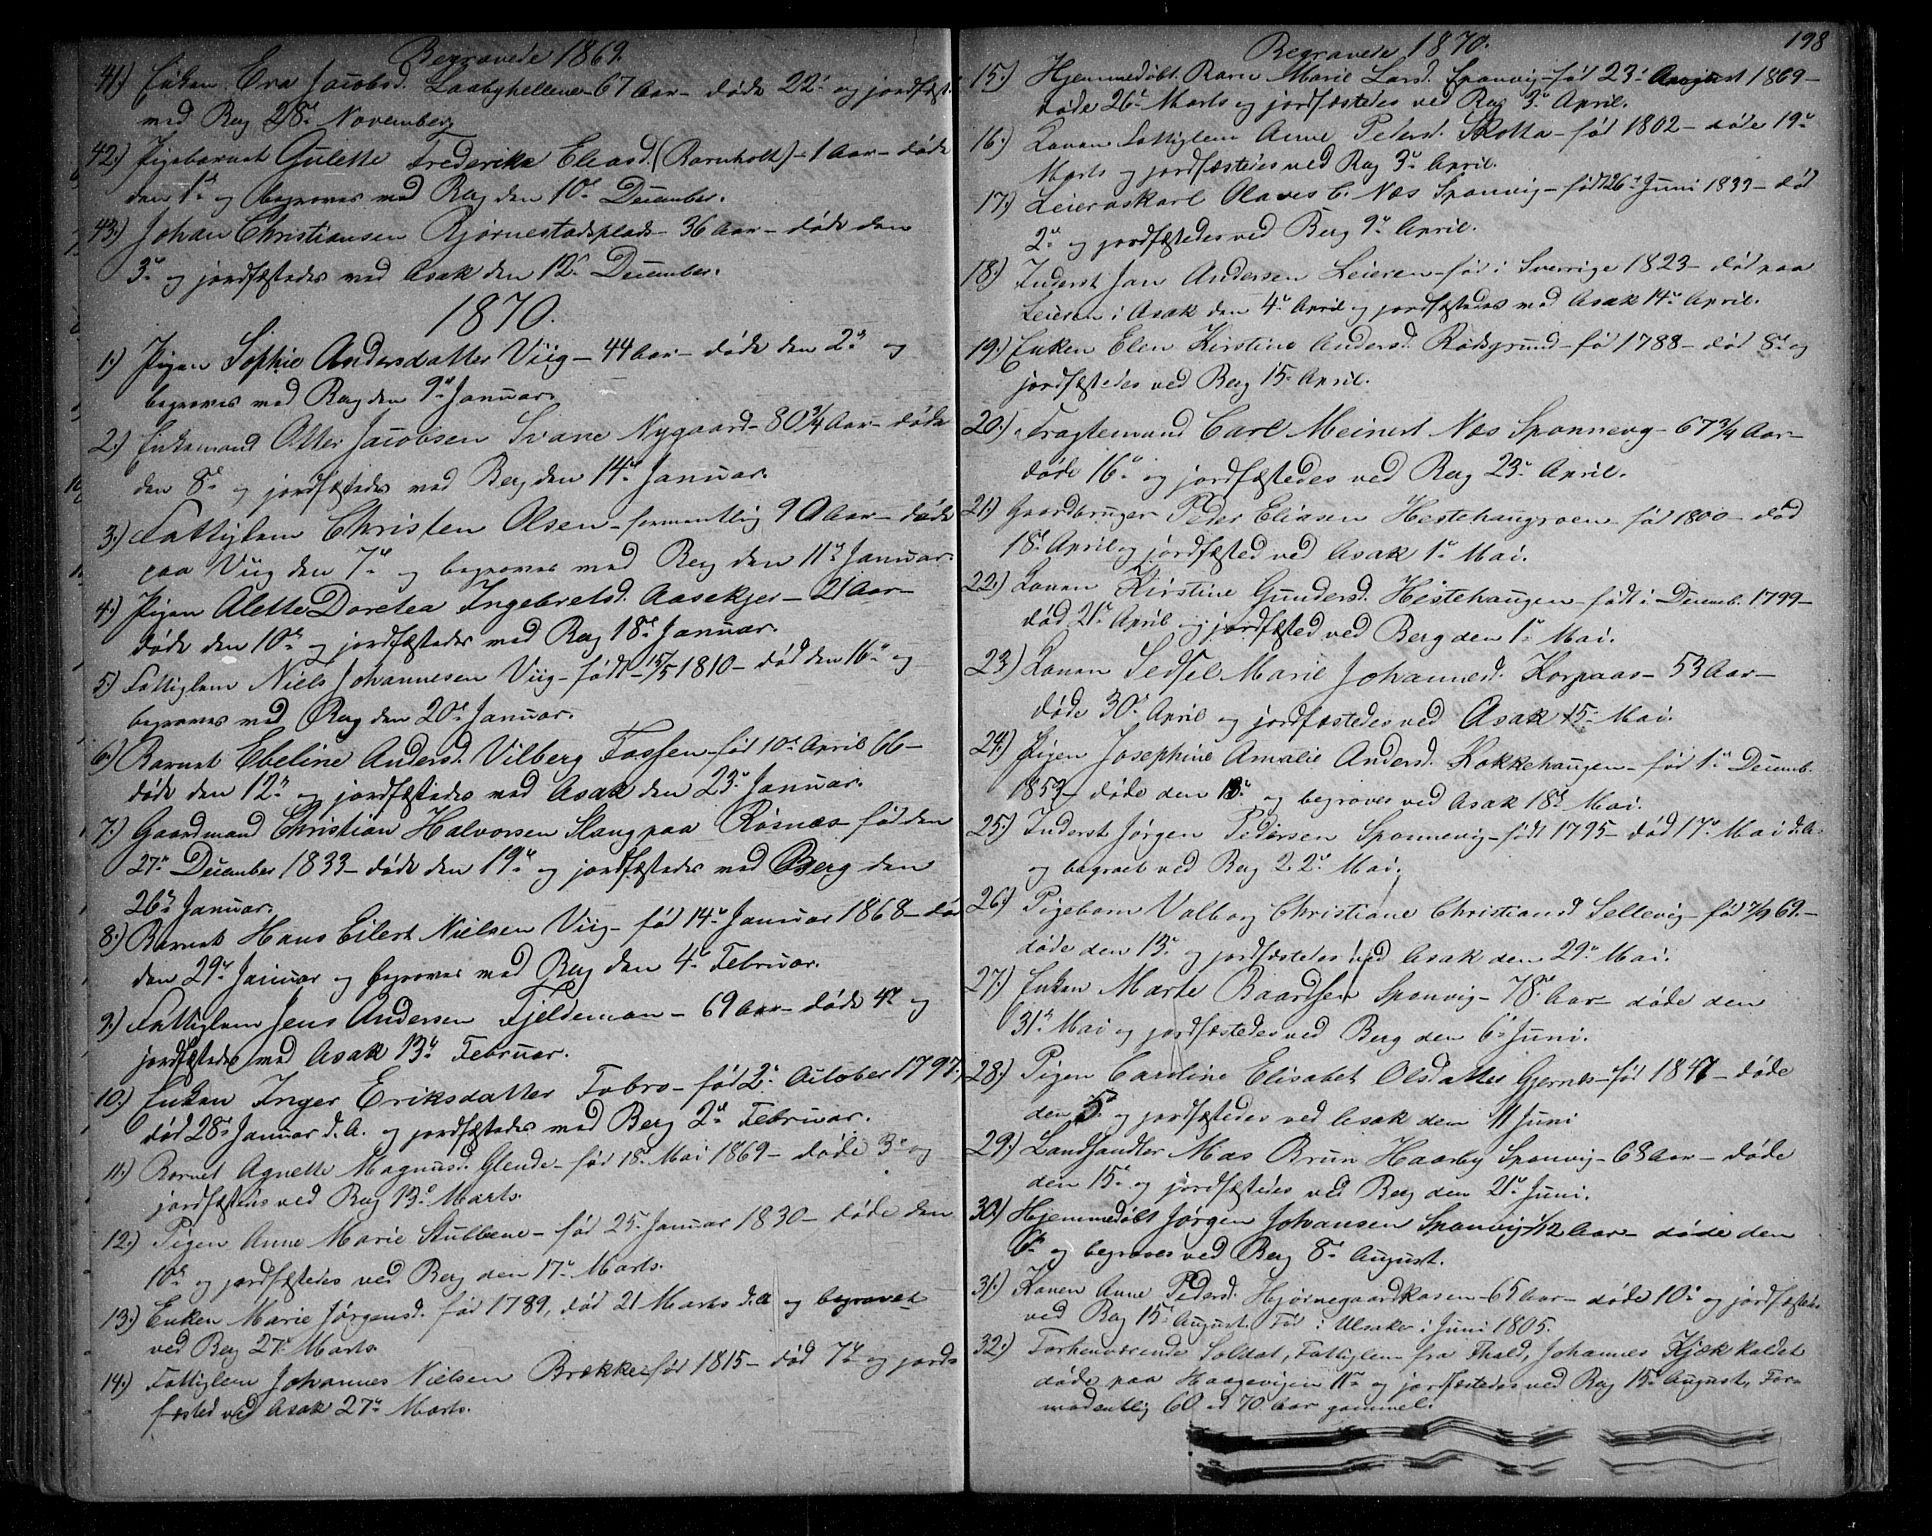 Begravede 1869.
41.) Enken Eva Jacobsd. Laabyhellene - 67 Aar - døde 22de og jordfæst.
ved Berg 28de November.
42.) Pigebarnet Gulette Frederike Eliasd. (Barnholt) - 1 Aar - døde
den 1ste og begraves ved Berg den 10de December.
43.) Johan Christiansen Bjørnestadsplads - 36 Aar - døde den
3de og jordfæstedes ved Asak den 12te December.
1870.
1.) Pigen Sophie Andersdatter Viig - 44 Aar - døde den 2den og
begraves ved Berg den 9de Januar.
2.) Enkemand Otter Jacobsen Svane Nygaard - 80 3/4 Aar - døde
den 8de og jordfæstedes ved Berg den 14de Januar.
3.) Fattiglem Christen Olsen - formentlig 90 Aar - døde
paa Viig den 7de og begraves ved Berg den 11te Januar.
4.) Pigen Alette Doretea Ingebretsd. Aasekjer - 21 Aar -
døde den 10de og jordfæstedes ved Berg 18de Januar.
5.) Fattiglem Niels Johannesen Viig - født 15/5 1810 - død den 16de og
begraves ved Berg den 20de Januar.
6.) Barnet Ebeline Andersd. Vilberg Fossen - født 10de April 66 -
døde den 12te og jordfæstedes ved Asak den 23de Januar.
7.) Gaardmand Christian Halvorsen Stang paa Røsnæs - født den
27de December 1833 - døde den 19de og jordfæstedes ved Berg den
26de Januar.
8.) Barnet Hans Eilert Nielsen Viig - født 14de Januar 1868 - død
den 29de Januar og begraves ved Berg den 4de Februar.
9.) Fattiglem Jens Andersen Fjeldeman - 69 Aar - døde 4de og
jordfæstedes ved Asak 13de Februar.
10.) Enken Inger Eriksdatter Fobro - født 2de October 1797.
død 28de Januar d.A. og jordfæstedes ved Berg 2den Februar.
11.) Barnet Agnette Magnusd. Glende - født 18de Mai 1869 - døde 3de og
jordfæstedes ved Berg 13de Marts.
12.) Pigen Anne Marie Stubbene - født 25de Januar 1830 - døde den
10de og jordfæstedes ved Berg den 17de Marts.
13.) Enken Marie Jørgensd. født 1789, død 21 Marts d.a og begravet
ved Berg 27de Marts.
14.) Fattiglem Johannes Nielsen Brække født 1815 - død 7de og jord-
fæsted ved Asak 27de Marts.
Begravede 1870.
198
15.) Hjemmedøbt Barn Marie Larsd. Sponvig - født 23de August 1869 -
døde 26de Marts og jordfæstedes ved Berg 3de April.
16.) Konen Fattiglem Anne Pedersd. Skotta - født 1802 - døde 19de
Marts og jordfæstedes ved Berg 3de April.
17.) Leieraskarl Olaves C. Næs Sponvig - født 26de Juni 1833 - død
2den og jordfæstedes ved Berg 9de April.
18.) Inderst Jan Andersen Leieren - født i Sverrige 1823 - død paa
Leieren i Asak den 4de April og jordfæstedes ved Asak 14de April.
19.) Enken Elen Kirstine Andersd. Rødsgrund - født 1788 - død 8de og
jordfæstedes ved Berg 15de April.
20.) Fragtemand Carl Meinert Næs Sponnevig - 67 3/4 Aar -
døde 16de og jordfæstedes ved Berg 23de April.
21.) Gaardbruger Peder Eliasen Hestehaugroen - født 1800 - død
18de April og jordfæsted ved Asak 1ste Mai.
22.) Konen Kirstine Gundersd. Hestehaugen - født i Decemb. 1799 -
død 21de April og jordfæsted ved Berg den 1ste Mai.
23.) Konen Sedsel Marie Johannesd. Korpaas - 53 Aar -
døde 30de April og jordfæstedes ved Asak 15de Mai.
24.) Pigen Josephine Amalie Andersd. Kokkehaugen - født 1ste Decemb.
1853 - døde den 12te og begraves ved Asak 18de Mai.
25.) Inderst Jørgen Pedersen Sponnevig - født 1795 - død 17de Mai d.A.
og begravet ved Berg 22de Mai.
26.) Pigebarn Valborg Christiane Christiansd Sellevig - født 7/9 69. -
døde den 13de og jordfæstedes ved Asak den 29de Mai.
27.) Enken Marte Baardsen Sponvig - 78de Aar - døde den
31te Mai og jordfæstedes ved Berg den 6te Juni.
28.) Pigen Caroline Elisabet Olsdatter Gjernes - født 1847 - døde
den 5 og jordfæstedes ved Asak den 11 Juni
29.) Landhandler Mas Brun Haarby Sponvig - 68 Aar - døde
den 15de og jordfæstedes ved Berg den 21de Juni.
30.) Hjemmedøbt Jørgen Johansen Sponvig 1/12 Aar - døde den
6te og begraves ved Berg 8de August.
31.) Konen Anne Pedersd. Hjørnegaardkasen - 65 Aar - døde 10de og jordfæstedes
ved Berg 15de August. Fød i Ulsaker i Juni 1805.
32.) Forhenværende Soldat, Fattiglem fra Thald, Johannes Kjæk kaldet
døde paa Haagevigen 11te og jordfæstedes ved Berg 15de August, For-
modentlig 60 a 70 Aar gammel.